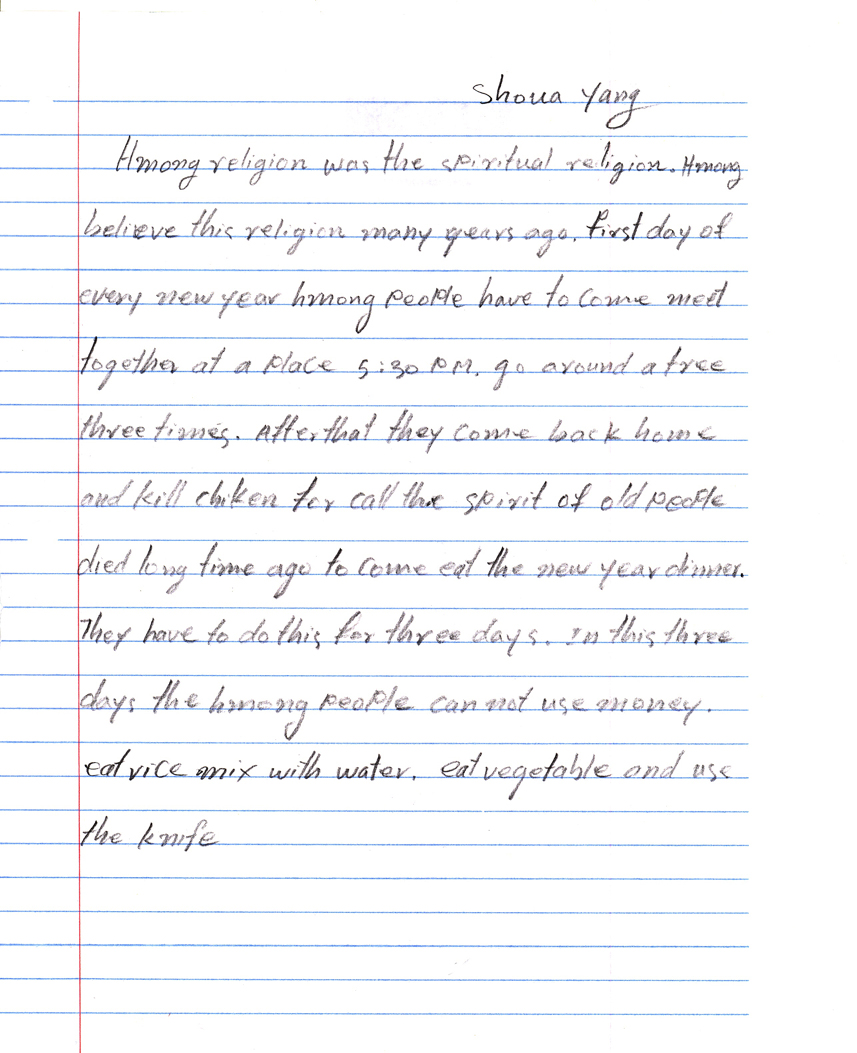 Shoua Yang
Hmong religion was the spiritual religion. Hmong
believe this religion many years ago. First day of
every new year hmong people have to come meet
together at a place 5:30 PM. go around a tree
three times. After that they come back home
and kill chiken for call the spirit of old people
died long time ago to come eat the new year dinner.
They have to do this for three days. In this three
days the hmong people can not use money.
eat rice mix with water. eat vegetable and use
the knife